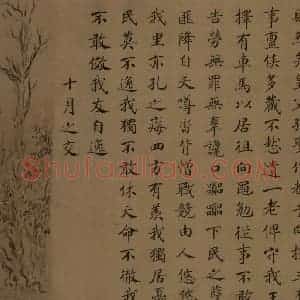 事亶侯多藏不憖遺一老俾守我
擇有車馬以居徂向黽勉從事不敢
告勞無罪無辜讒口囂囂下民之孽
匪降自天噂沓背憎職競由人悠悠
我里亦孔之痗四方有羨我獨居憂
民莫不逸我獨不敢休天命不徹我
不敢傚我友自逸
十月之交